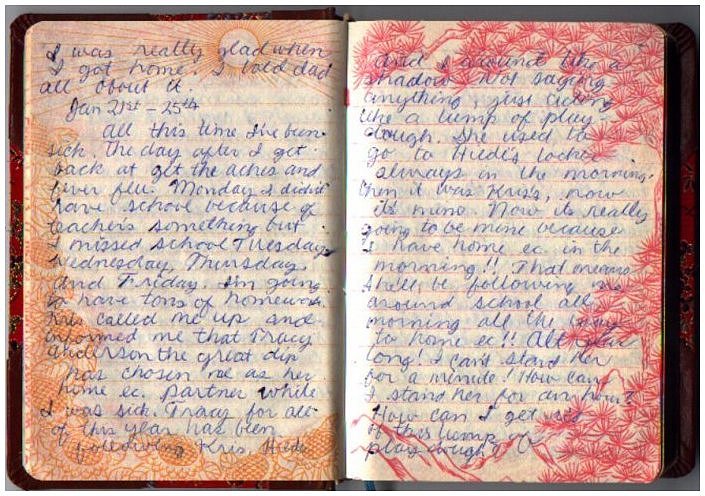 I was really glad when
I got home. I told dad
all about it.
Jan 21st - 25th
all this time I've been
sick the day after I get
back at get the aches and
fever flu. Monday I didn't
have school because of
teachers something but
I missed school Tuesday,
Wednesday, Thursday,
and Friday. I'm going
to have tons of homework.
Kris called me up and
informed me that Tracy
Anderson the great dip
has chosen me as her
home ec. partner while
I was sick. Tracy for all
of this year has been
following Kris, Hiedi
and I around like a
shadow not saying
anything, just acting
like a lump of play-
dough. She used to
go to Hiedi's locker
always in the morning.
then it was Kris's, now
it's mine. Now its really
going to be mine because
I have home ec. in the
morning!! That means
she'll be following me
around school all
morning all the way
to home ec!! All year
long! I can't stand her
for a minute! How can
I stand her for an hour?
How can I get used
to this lump of
play dough?